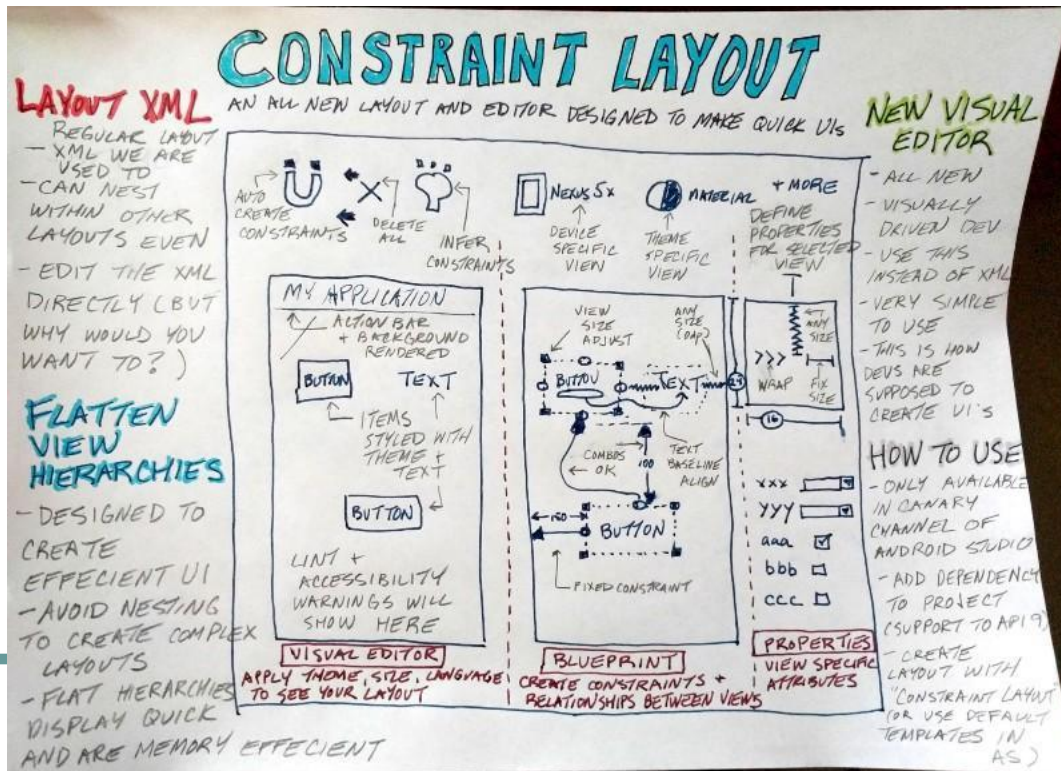 CONSTRAINT LAYOUT
AN ALL NEW LAYOUT AND EDITOR DESIGNED TO MAKE QUICK UIs
LAYOUT XML
REGULAR LAYOUT
- XML WE ARE
USED TO
- CAN NEST
WITHIN OTHER
LAYOUTS EVEN
- EDIT THE XML
DIRECTLY (BUT
WHY WOULD YOU
WANT TO?)
FLATTEN
VIEW
HIERARCHIES
- DESIGNED TO
CREATE
EFFECIENT UI
- AVOID NESTING
TO CREATE COMPLEX
LAYOUTS
- FLAT HIERARCHIES
DISPLAY QUICK
AND ARE MEMORY EFFECIENT
AUTO
CREATE
CONSTRAINTS
DELETE
ALL
INFER
CONSTRAINTS
NEXUS 5x
DEVICE
SPECIFIC
VIEW
MATERIAL
THEME
SPECIFIC
VIEW
+ MORE
DEFINE
PROPERTIES
FOR SELECTED
VIEW
MY APPLICATION
ACTION BAR
+ BACKGROUND
RENDERED
BUTTON
TEXT
ITEMS
STYLED WITH
THEME +
TEXT
BUTTON
LINT +
ACCESSIBILITY
WARNINGS WILL
SHOW HERE
VISUAL EDITOR
APPLY THEME, SIZE, LANGUAGE
TO SEE YOUR LAYOUT
VIEW
SIZE
ADJUST
ANY
SIZE
(0dp)
BUTTON
TEXT
24
COMBOS
OK
100
TEXT
BASELINE
ALIGN
150
BUTTON
FIXED CONSTRAINT
BLUEPRINT
CREATE CONSTRAINTS +
RELATIONSHIPS BETWEEN VIEWS
ANY
SIZE
>>>
WRAP
FIX
SIZE
16
xxx
yyy
aaa
bbb
ccc
PROPERTIES
VIEW SPECIFIC
ATTRIBUTES
NEW VISUAL
EDITOR
- ALL NEW
- VISUALLY
DRIVEN DEV
- USE THIS
INSTEAD OF XML
- VERY SIMPLE
TO USE
- THIS IS HOW
DEVS ARE
SUPPOSED TO
CREATE UI'S
HOW TO USE
- ONLY AVAILABLE
IN CANARY
CHANNEL OF
ANDROID STUDIO
- ADD DEPENDENCY
TO PROJECT
(SUPPORT TO API 9)
- CREATE
LAYOUT WITH
"CONSTRAINT LAYOUT
(OR USE DEFAULT
TEMPLATES IN
AS)